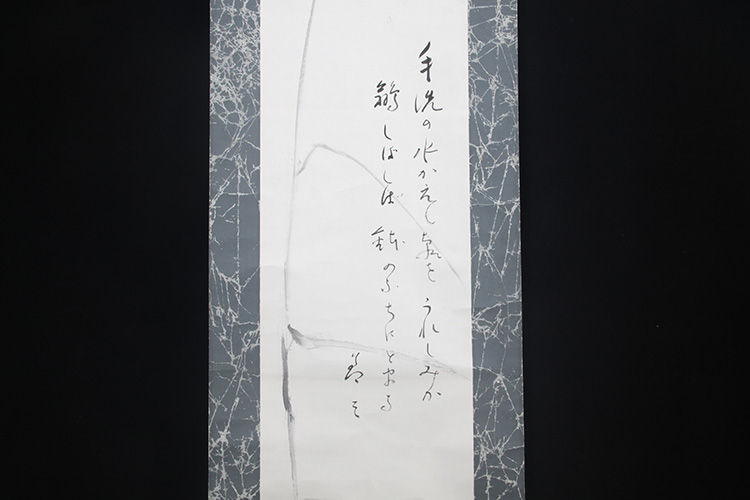 手洗の水かえしをうれしみか
鶲しばしば鉢のふちにとまる